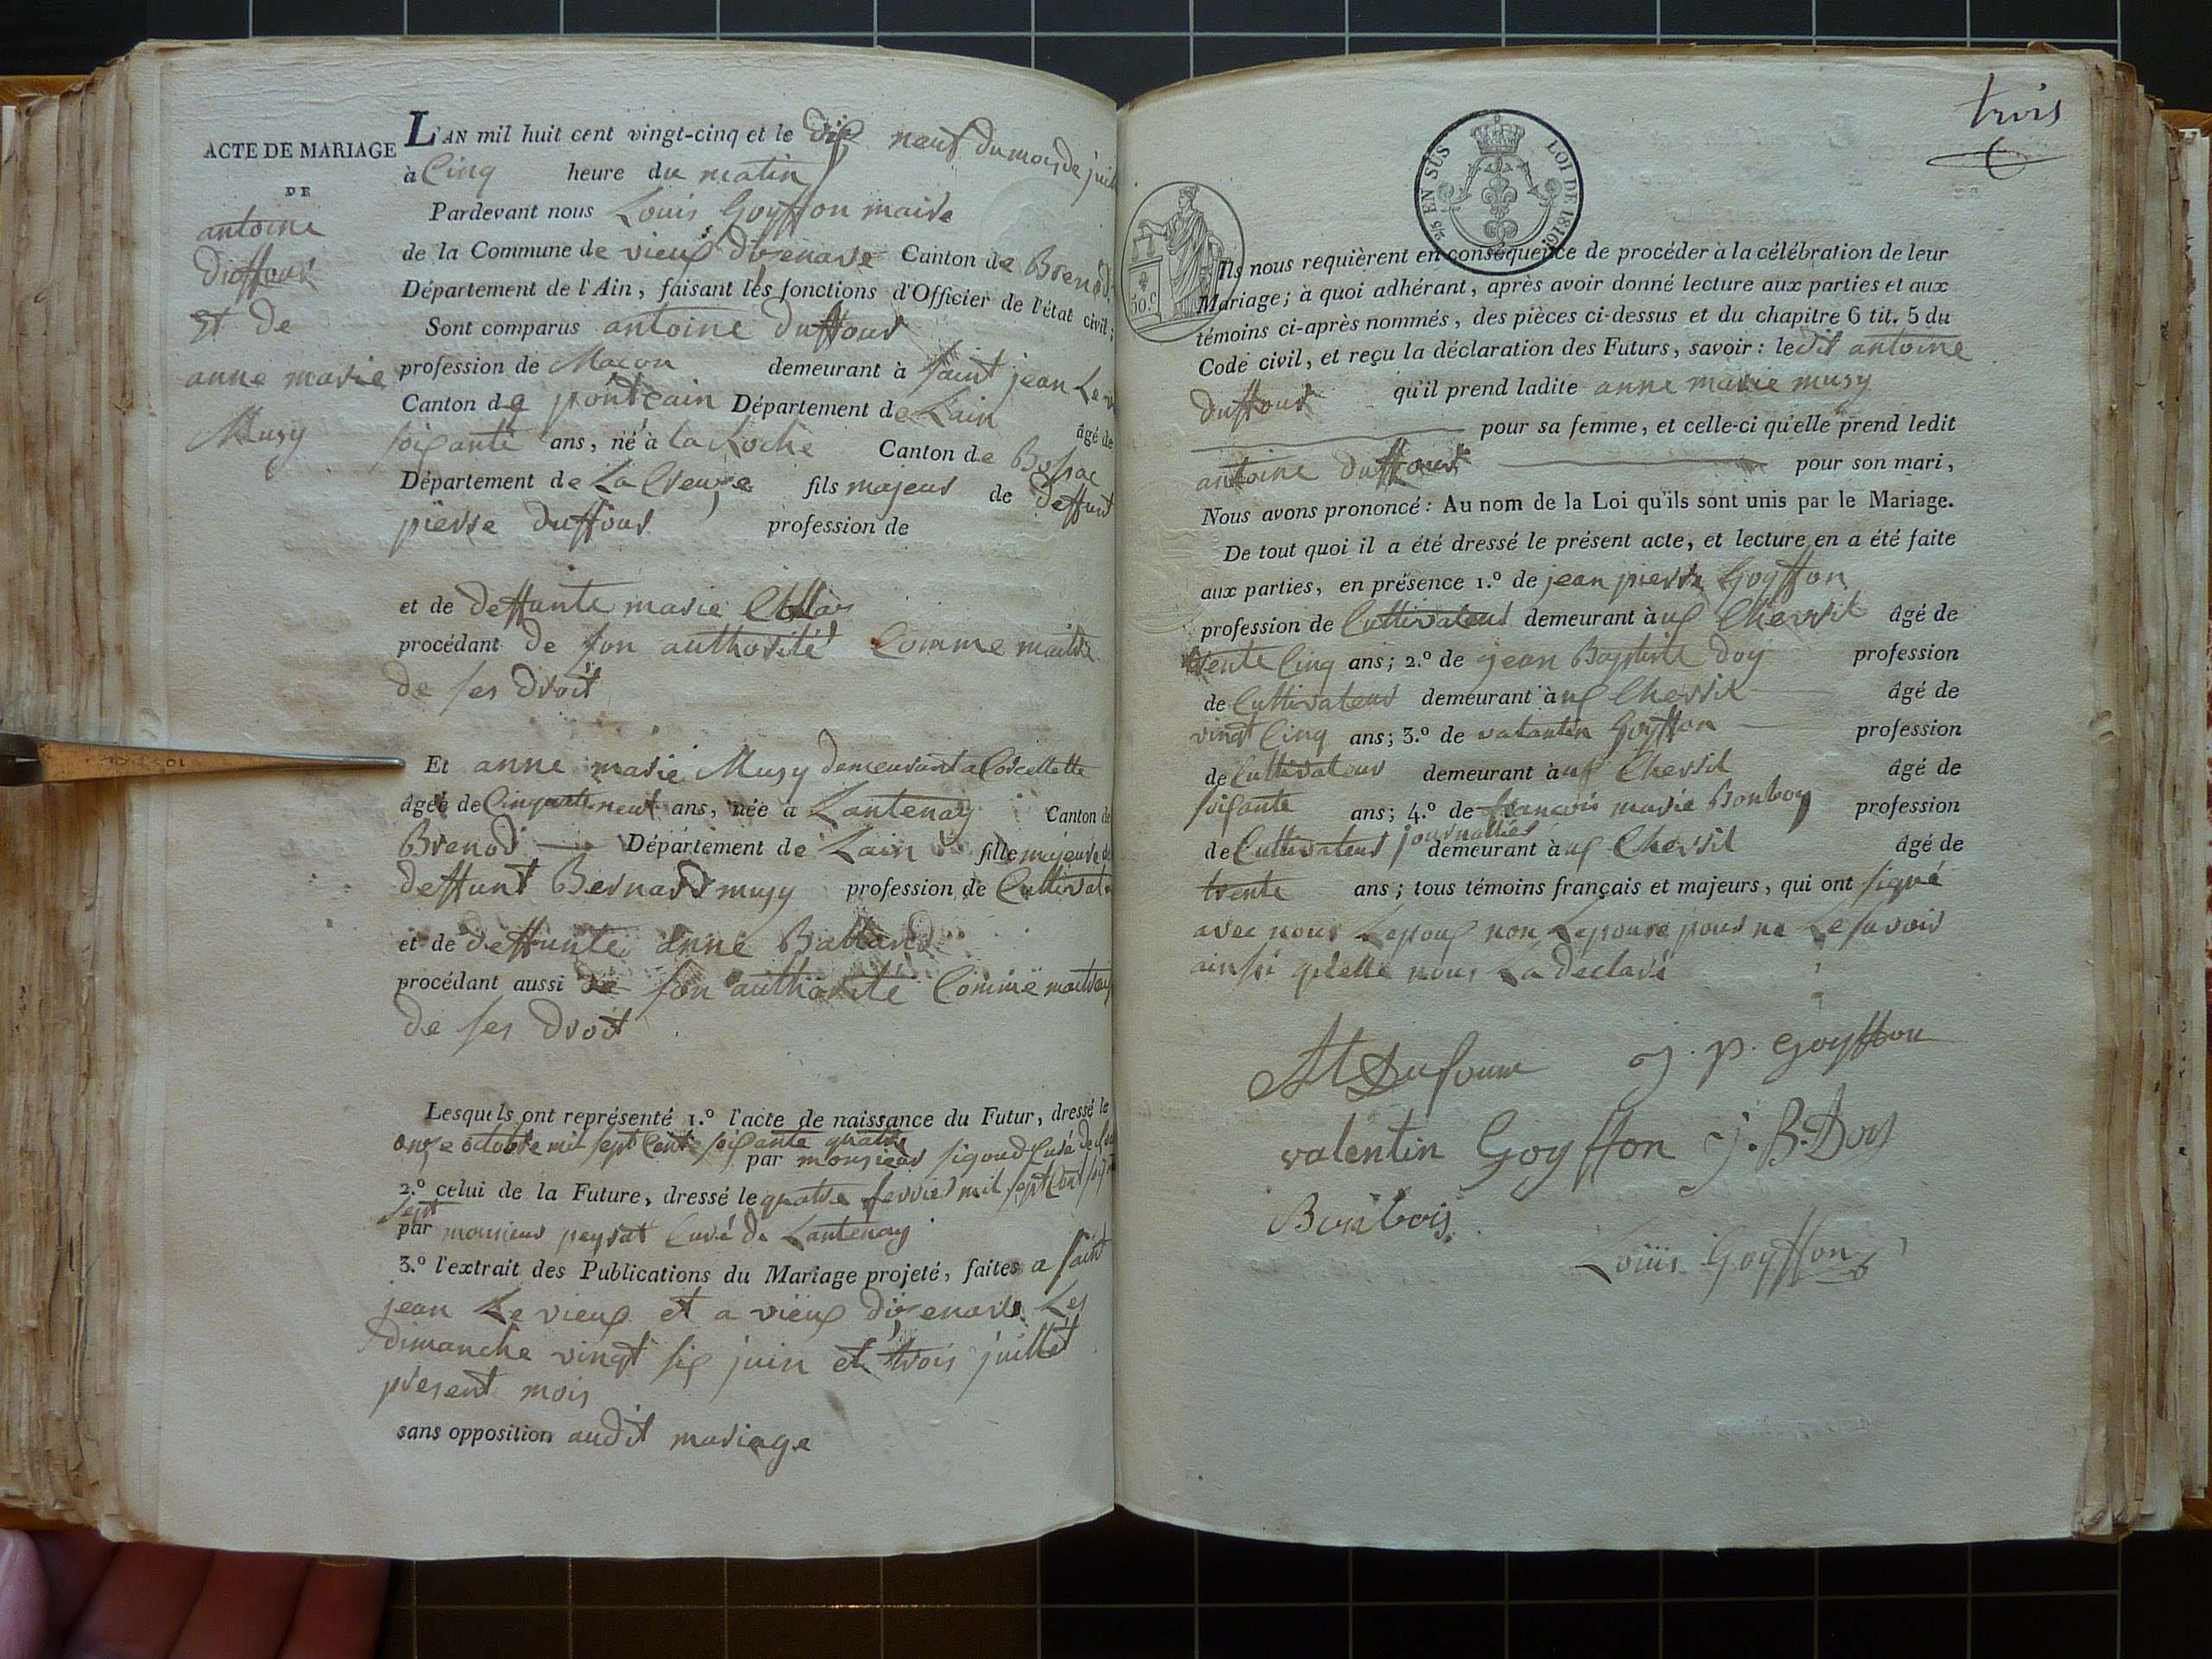 ACTE DE MARIAGE
DE
antoine
Duffour
Et De
anne marie
Musy
L'AN mil huit cent vingt-cinq et le dix neuf du mois de juil
à Cinq heure du matin
Pardevant nous Louis Goyffon maire
de la Commune de vieux dizenave Canton de Brenod
Département de l'Ain, faisant les fonctions d'Officier de l'état civil;
Sont comparus antoine duffour
profession de Macon demeurant à saint jean Le v
Canton de pontdain Département de Lain âgé de
soixante ans, né à La Roche Canton de
Département de La Creuze fils majeur de deffunt
pierre duffour profession de
et de deffunte marie
procédant de son authorité Comme maitre
de ses droit
Et anne marie Musy demeurant a Corcellette
âgée de Cinquante neuf ans, née à Lantenay Canton de
Brenod Département de Lain fille majeure de
deffunt Bernard musy profession de Cultivat
et de deffunte anne Ballard
procédant aussi de son authorité Comme maitre
de ses droit
Lesquels ont représenté 1.º l'acte de naissance du Futur, dressé le
onze octobre mil sept Cent soixante quatre
par monsieur sigoud Curé de
2.º celui de la Future, dressé le quatre fevrier mil sept Cent
sept
par monsieur peysat Curé de Lantenay
3.º l'extrait des Publications du Mariage projeté, faites a saint
jean Le vieux et a vieux dizenave Les
dimanche vingt six juin et trois juillet
present mois
sans opposition audit mariage
trois
25 EN SUS LOI DE 1816
50.c
Ils nous requièrent en conséquence de procéder à la célébration de leur
Mariage; à quoi adhérant, après avoir donné lecture aux parties et aux
témoins ci-après nommés, des pièces ci-dessus et du chapitre 6 tit. 5 du
Code civil, et reçu la déclaration des Futurs, savoir: ledit antoine
duffour qu'il prend ladite anne marie musy
pour sa femme, et celle-ci qu'elle prend ledit
antoine duffour pour son mari,
Nous avons prononcé: Au nom de la Loi qu'ils sont unis par le Mariage.
De tout quoi il a été dressé le présent acte, et lecture en a été faite
aux parties, en présence 1.º de jean pierre Goyffon
profession de Cultivateur demeurant à uf Chevril âgé de
trente Cinq ans; 2.º de jean Baptiste doy profession
de Cultivateur demeurant à uf Chevril âgé de
vingt Cinq ans; 3.º de valantin Goyffon profession
de Cultivateur demeurant à uf Chevril âgé de
soixante ans; 4.º de francois marie Bonboy profession
de Cultivateur journallier demeurant à uf Chevril âgé de
trente ans; tous témoins français et majeurs, qui ont signé
avec nous Lepoux non Lepouse pour ne Le savoir
ainssi quelle nous La declaré
At Dufour J. P. Goyffon
valentin Goyffon J. B. Doy
Bonbois
Louis Goyffon